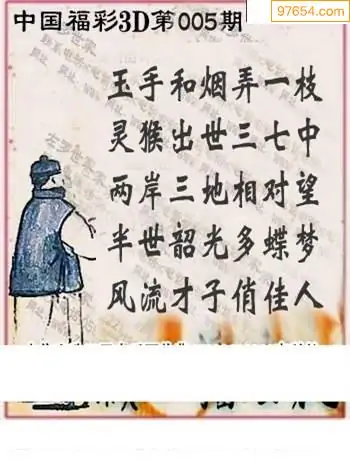 中国福彩3D第005期
97654.com
玉手和烟弄一枝
灵猴出世三七中
两岸三地相对望
半世韶光多蝶梦
风流才子俏佳人